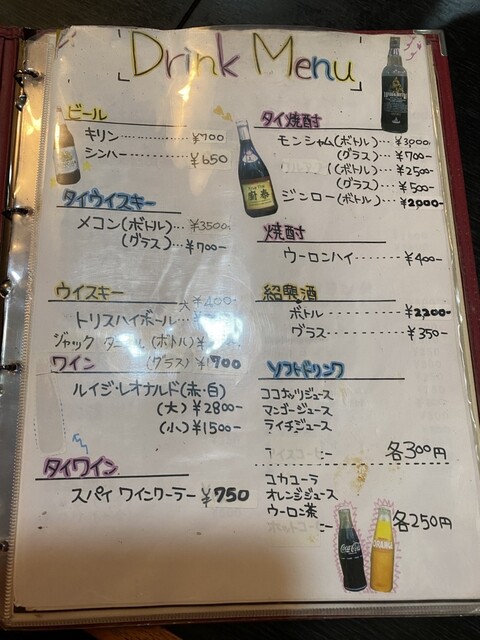 Drink Menu
ビール
キリン ¥700
シンハー ¥650
タイウイスキー
メコン(ボトル) ¥3500-
(グラス) ¥700-
ウイスキー
大 ¥400-
トリスハイボール
ジャック (ボトル) ¥
(グラス) ¥
ワイン
ルイジ・レオナルド(赤・白)
(大) ¥2800-
(小) ¥1500-
タイワイン
スパイ ワインクーラー ¥750
タイ焼酎
モンシャム(ボトル) ¥3000-
(グラス) ¥700-
(ボトル) ¥2500-
(グラス) ¥500-
ジンロー(ボトル) ¥2000-
焼酎
ウーロンハイ ¥400-
紹興酒
ボトル ¥2200-
グラス ¥350-
ソフトドリンク
ココナッツジュース
マンゴージュース
ライチジュース
各300円
コカコーラ
オレンジジュース
ウーロン茶
各250円
Coca-Cola